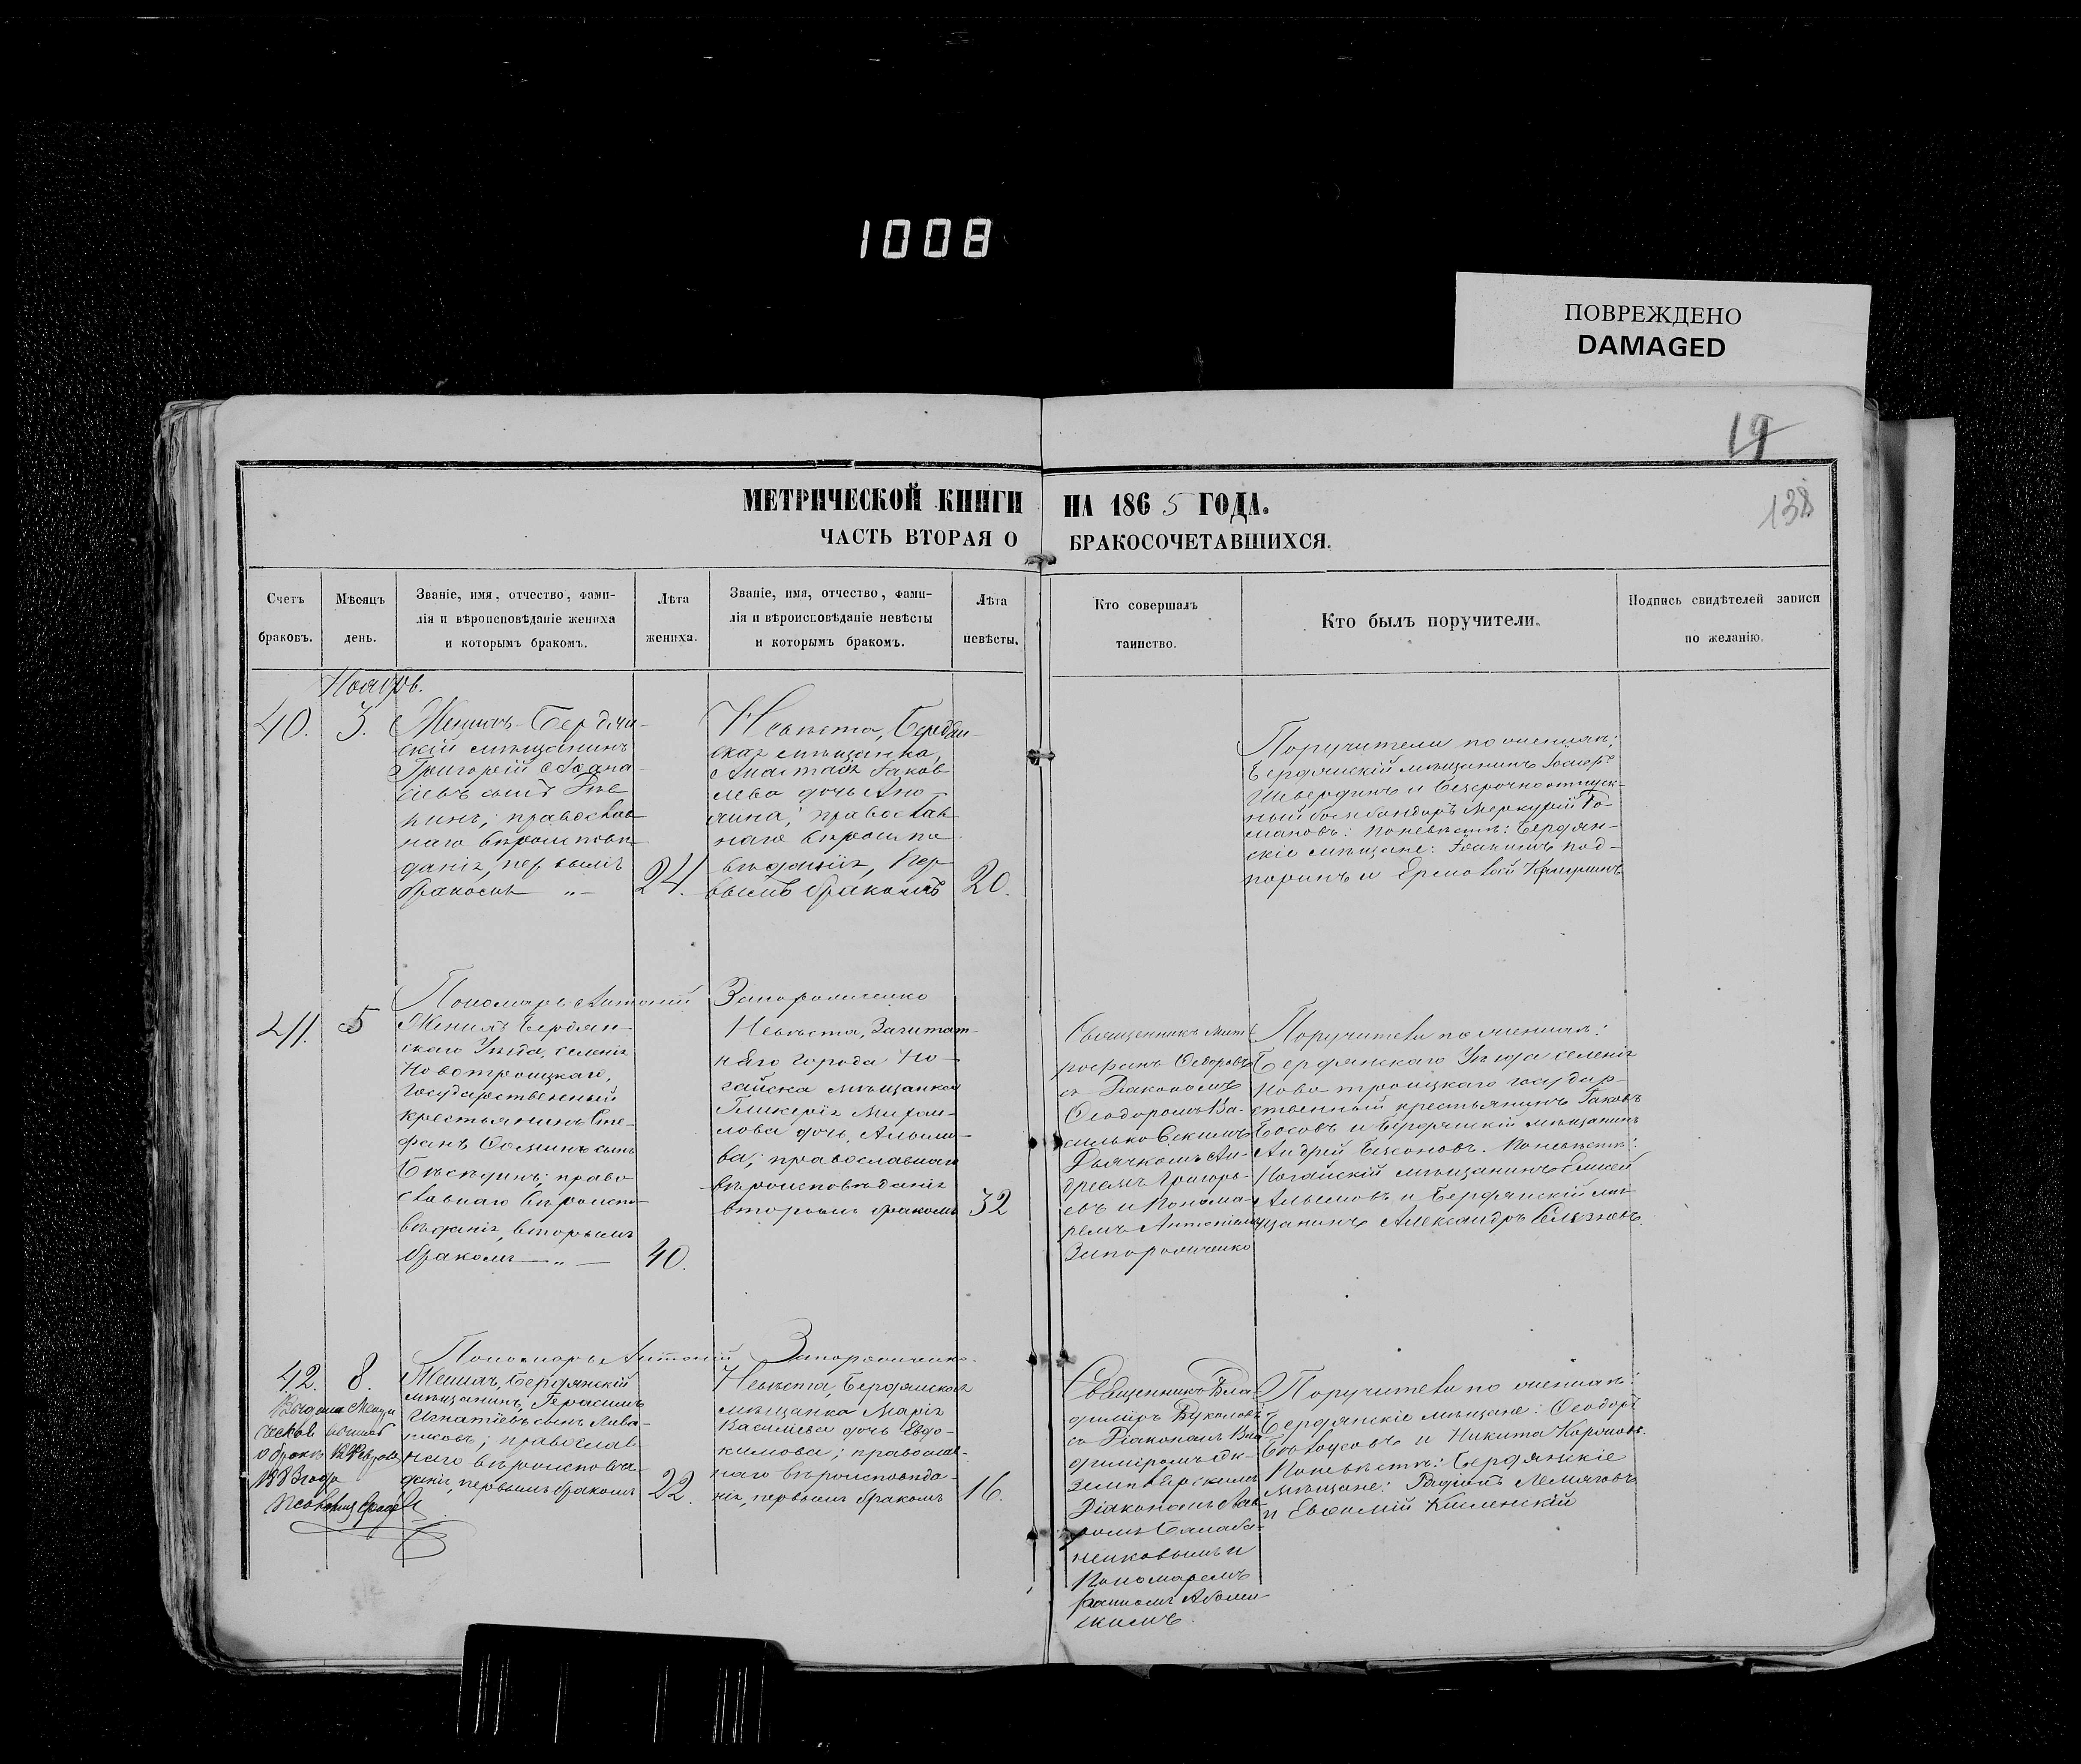 1008
ПОВРЕЖДЕНО
DAMAGED
19
138
МЕТРИЧЕСКОЙ КНИГИ НА 1865 ГОДА.
ЧАСТЬ ВТОРАЯ О БРАКОСОЧЕТАВШИХСЯ.
Счетъ
браковъ.
Мѣсяцъ
день.
Званіе, имя, отчество, фами-
лія и вѣроисповѣданіе жениха
и которымъ бракомъ.
Лѣта
жениха.
Званіе, имя, отчество, фами-
лія и вѣроисповѣданіе невѣсты
и которымъ бракомъ.
Лѣта
невѣсты.
Кто совершалъ
таинство.
Кто былъ поручители.
Подпись свидѣтелей записи
по желанію.
Ноябрь.
40.
3.
Женихъ Бердян-
скій мѣщанинъ
Григорій Аѳана-
сіевъ сынъ
православ
наго вѣроисповѣ-
данія, первымъ
бракомъ „ —
24.
Невѣста, Бердян-
ская мѣщанка,
Анастасія Іаков
лева дочь
православ
наго вѣроиспо
вѣданія, пер-
вымъ бракомъ
20.
Поручители по женихѣ;
Бердянскій мѣщанинъ
и безсрочноотпуск-
ный бомбандиръ Меркурій Ро-
мановъ: по невѣстѣ: Бердян-
скіе мѣщане: Іоакимъ Под-
поринъ и Ермолай
Пономарь Антоній Запорожченко
41.
5
Женихъ Бердян-
скаго Уѣзда, селенія
Новотроицкаго,
Государственный
крестьянинъ Сте-
фанъ Ѳоминъ сынъ
Бѣсѣдинъ; право
славнаго вѣроиспо-
вѣданія, вторымъ
бракомъ — „ —
40.
Невѣста, Заштат-
наго города Но-
гайска мѣщанка
Гликерія Михаи-
лова дочь,
православнаго
вѣроисповѣданія
вторымъ бракомъ
32
Священникъ Мит
рофанъ Ѳедоровъ
съ Діакономъ
Ѳеодоромъ Ва-
сильковскимъ
Дьячкомъ Ан-
дреемъ Григорь-
евъ и Понома-
ремъ Антоніемъ
Запорожченко
Поручители по женихѣ:
Бердянскаго Уѣзда селенія
Ново троицкаго государ-
ственный крестьянинъ Іаковъ
Босовъ и Бердянскій мѣщанинъ
Андрей . По невѣстѣ:
Ногайскій мѣщанинъ
и Бердянскій мѣ
щанинъ Александръ Селезневъ.
Пономарь Антоній Запорожченко.
42.
8.
Женихъ, Бердянскій
мѣщанинъ, Герасимъ
Игнатіевъ сынъ
православ-
наго вѣроисповѣ-
данія, первымъ бракомъ
22.
Невѣста, Бердянская
мѣщанка Марія
Василіева дочь Евдо-
кимова; православ-
наго вѣроисповѣда-
нія, первымъ бракомъ
16.
Священникъ Вла
диміръ Буколовъ
съ Діакономъ Вла
диміромъ
Діакономъ
и
Пономаремъ
Поручители по женихѣ:
Бердянскіе мѣщане: Ѳеодоръ
Бѣлоусовъ и Никита
По невѣстѣ: Бердянскіе
мѣщане: Родіонъ
и Евѳимій